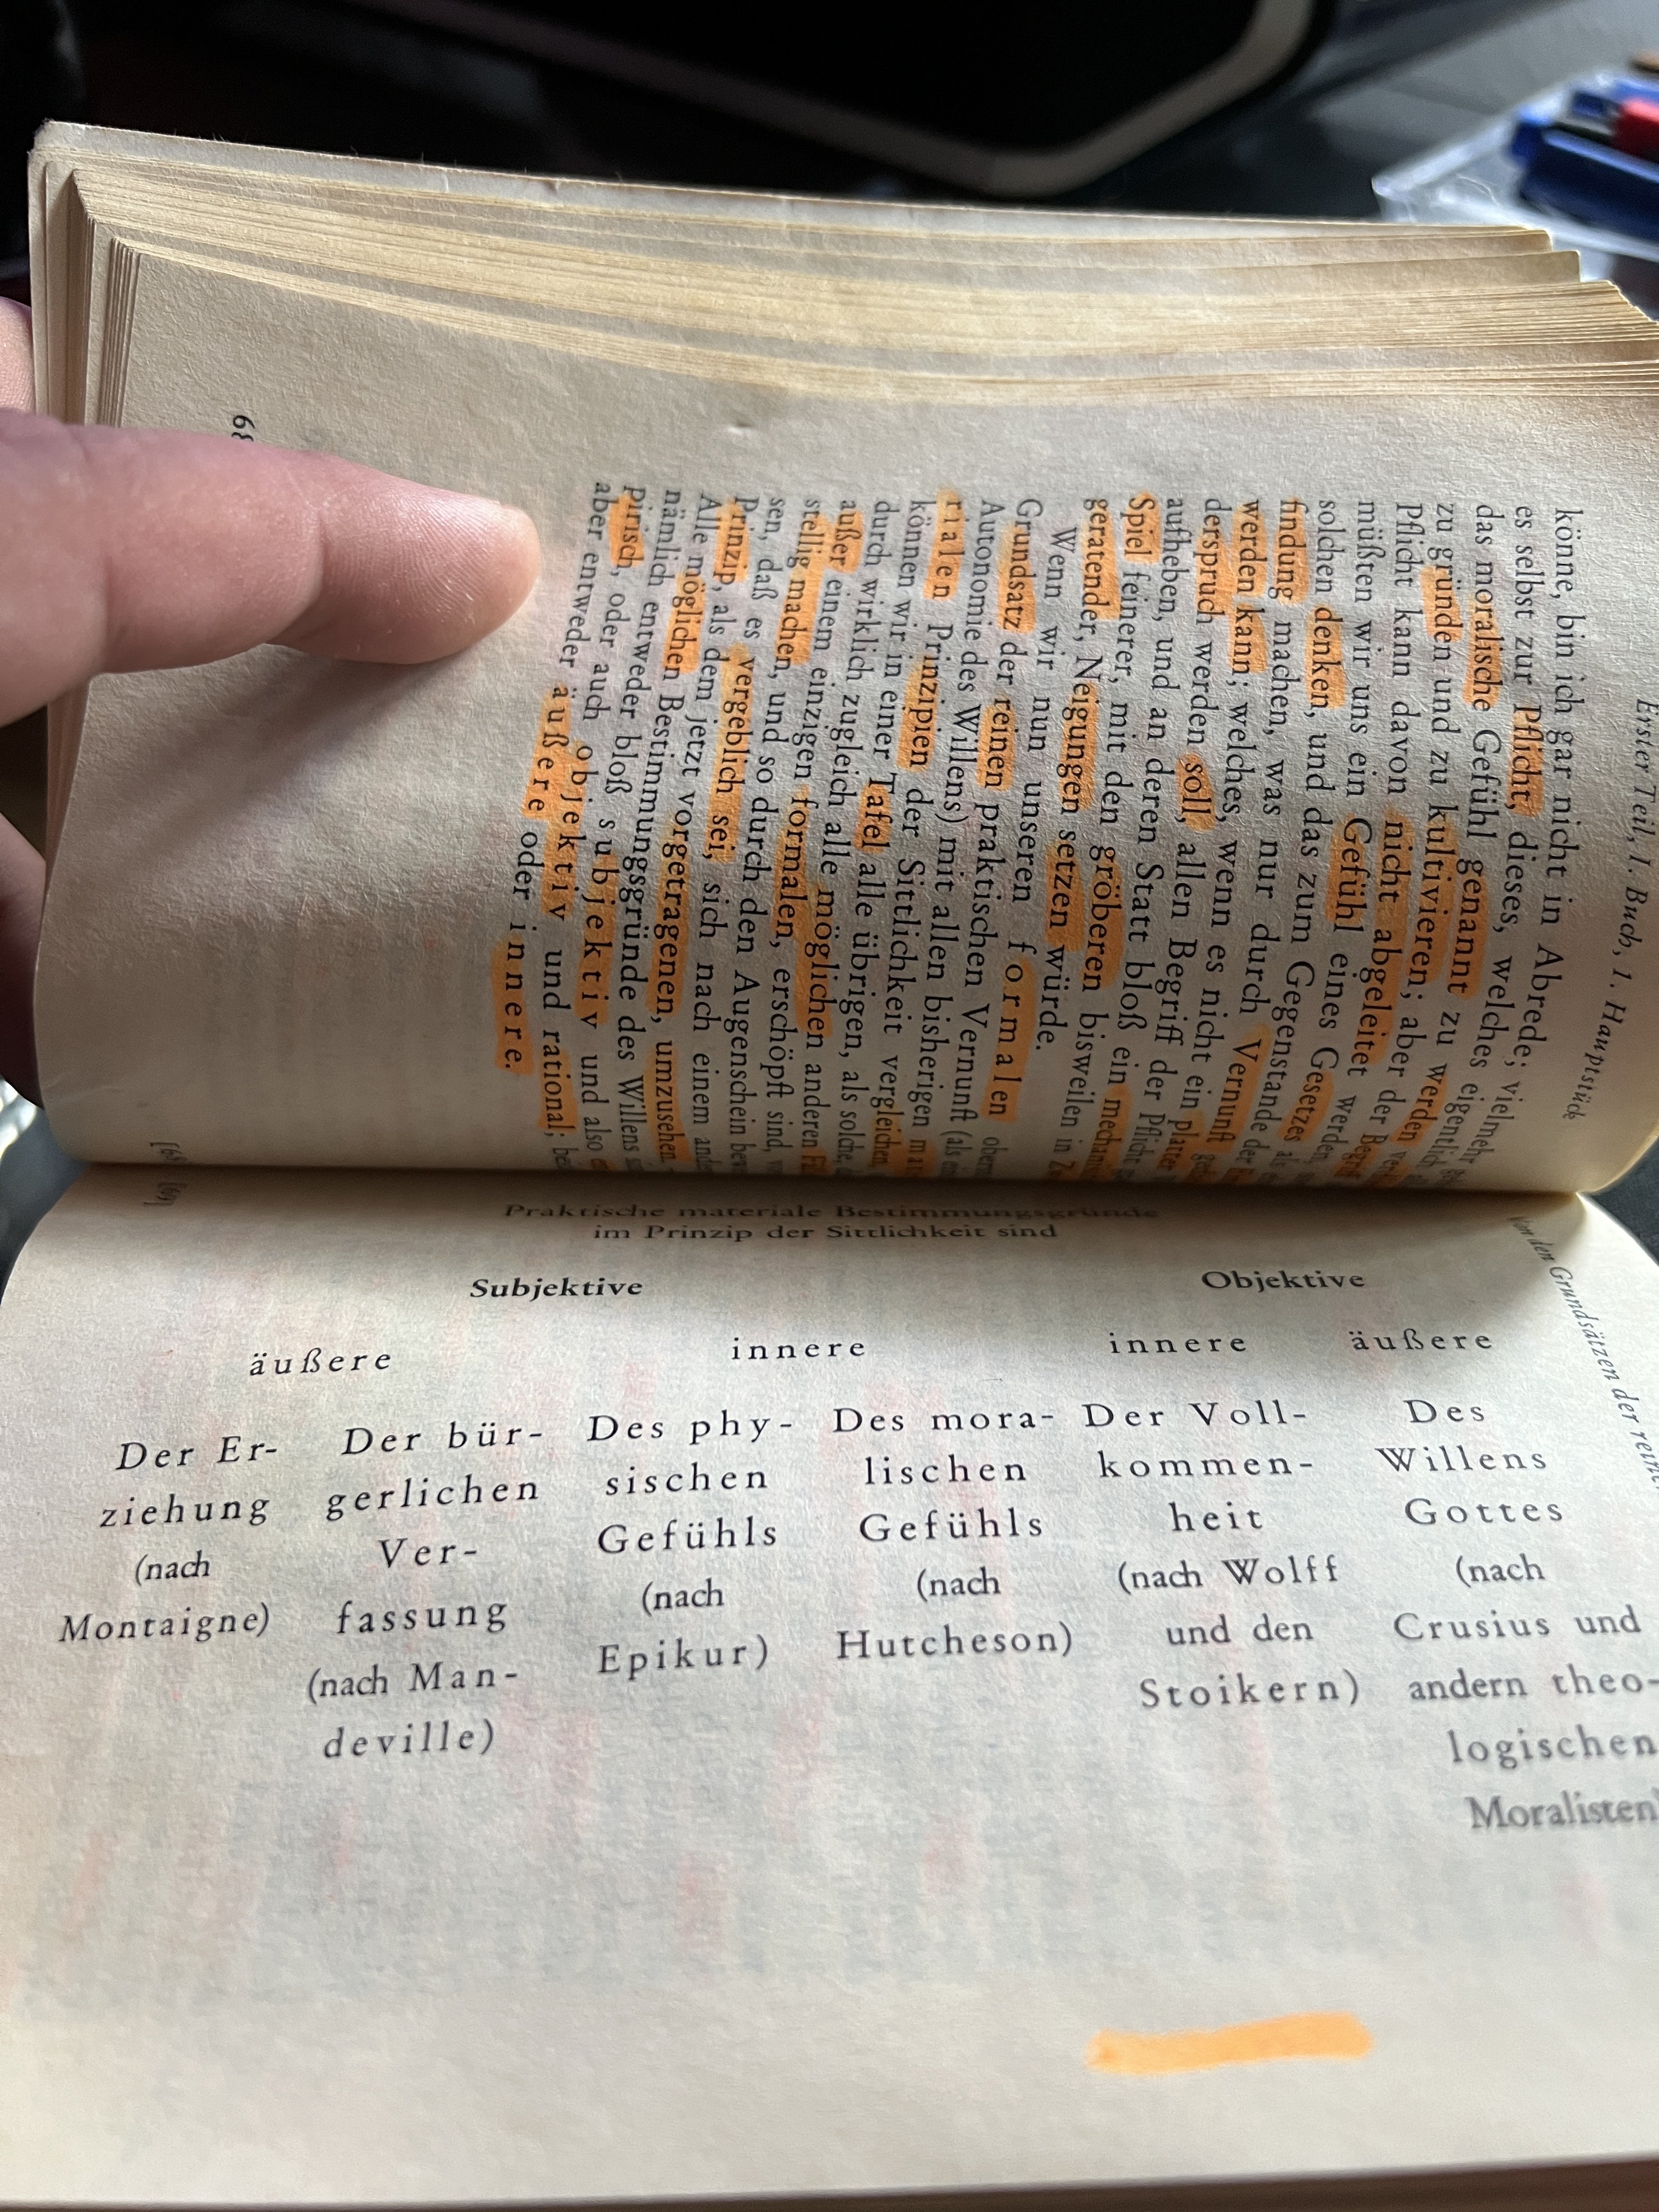 Erster Teil, I. Buch, 1. Hauptstück
könne, bin ich gar nicht in Abrede; vielmehr
es selbst zur Pflicht, dieses, welches eigentlich
das moralische Gefühl genannt zu werden
zu gründen und zu kultivieren; aber der Begriff
Pflicht kann davon nicht abgeleitet werden,
müßten wir uns ein Gefühl eines Gesetzes als
solchen denken, und das zum Gegenstande der
findung machen, was nur durch Vernunft
werden kann; welches, wenn es nicht ein platter
derspruch werden soll, allen Begriff der Pflicht
aufheben, und an deren Statt bloß ein
Spiel feinerer, mit den gröberen bisweilen in
geratender, Neigungen setzen würde.
Wenn wir nun unseren formalen
Grundsatz der reinen praktischen Vernunft (als
Autonomie des Willens) mit allen bisherigen
rialen Prinzipien der Sittlichkeit vergleichen,
können wir in einer Tafel alle übrigen, als solche,
durch wirklich zugleich alle möglichen anderen
außer einem einzigen formalen, erschöpft sind,
stellig machen, und so durch den Augenschein
sen, daß es vergeblich sei, sich nach einem
Prinzip, als dem jetzt vorgetragenen, umzusehen.
Alle möglichen Bestimmungsgründe des Willens
nämlich entweder bloß subjektiv und also
pirisch, oder auch objektiv und rational;
aber entweder äußere oder innere.
68
Von den Grundsätzen der reinen
Praktische materiale Bestimmungsgründe
im Prinzip der Sittlichkeit sind
Subjektive Objektive
äußere innere innere äußere
Der Er- Der bür- Des phy- Des mora- Der Voll- Des
ziehung gerlichen sischen lischen kommen- Willens
(nach Ver- Gefühls Gefühls heit Gottes
Montaigne) fassung (nach (nach (nach Wolff (nach
(nach Man- Epikur) Hutcheson) und den Crusius und
deville) Stoikern) andern theo-
logischen
Moralisten)